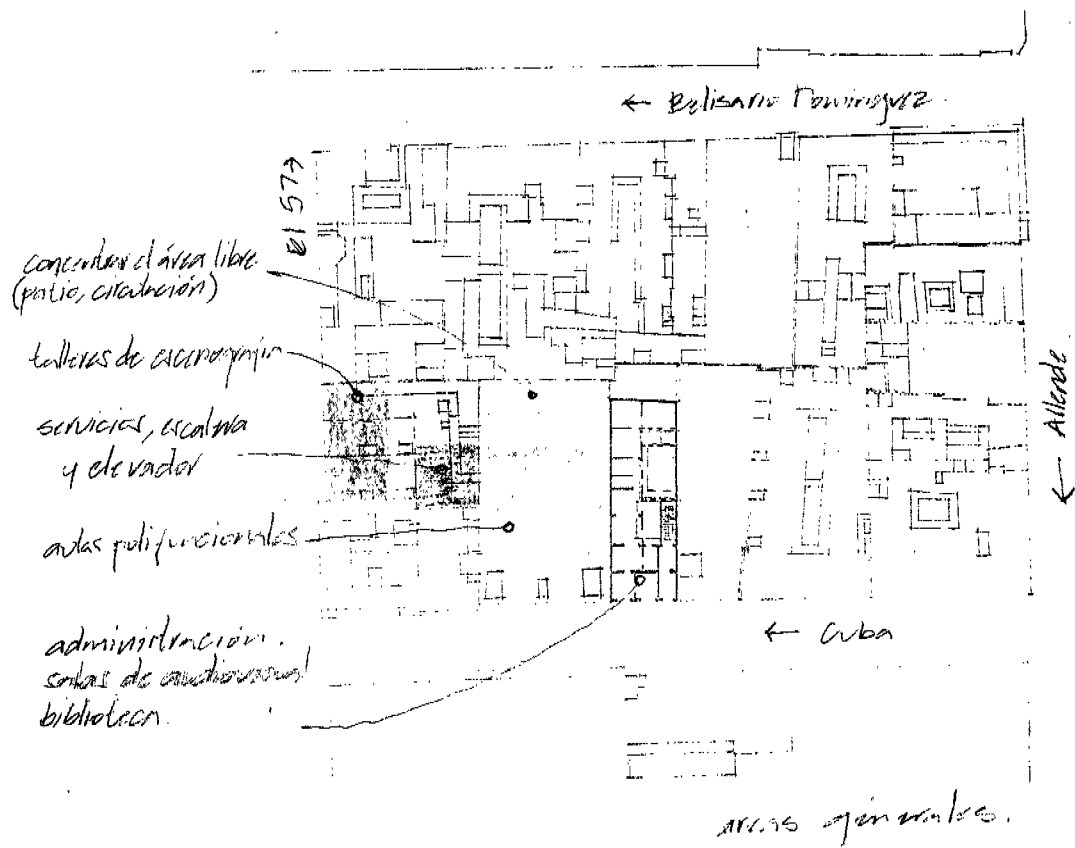 ← Belisario Domínguez
concentrar el área libre
(patio, circulación)
talleres de escenografía
servicios, escalera
y elevador
aulas polifuncionales
administración.
salas de audiovisual
biblioteca.
← Allende
← Cuba
areas generales.